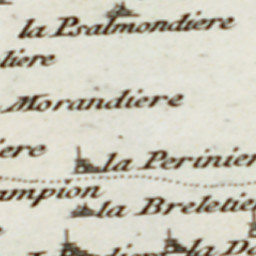 la Psalmondiere
liere
Morandiere
iere
la Perinier
ampion
la Breletie
la Do